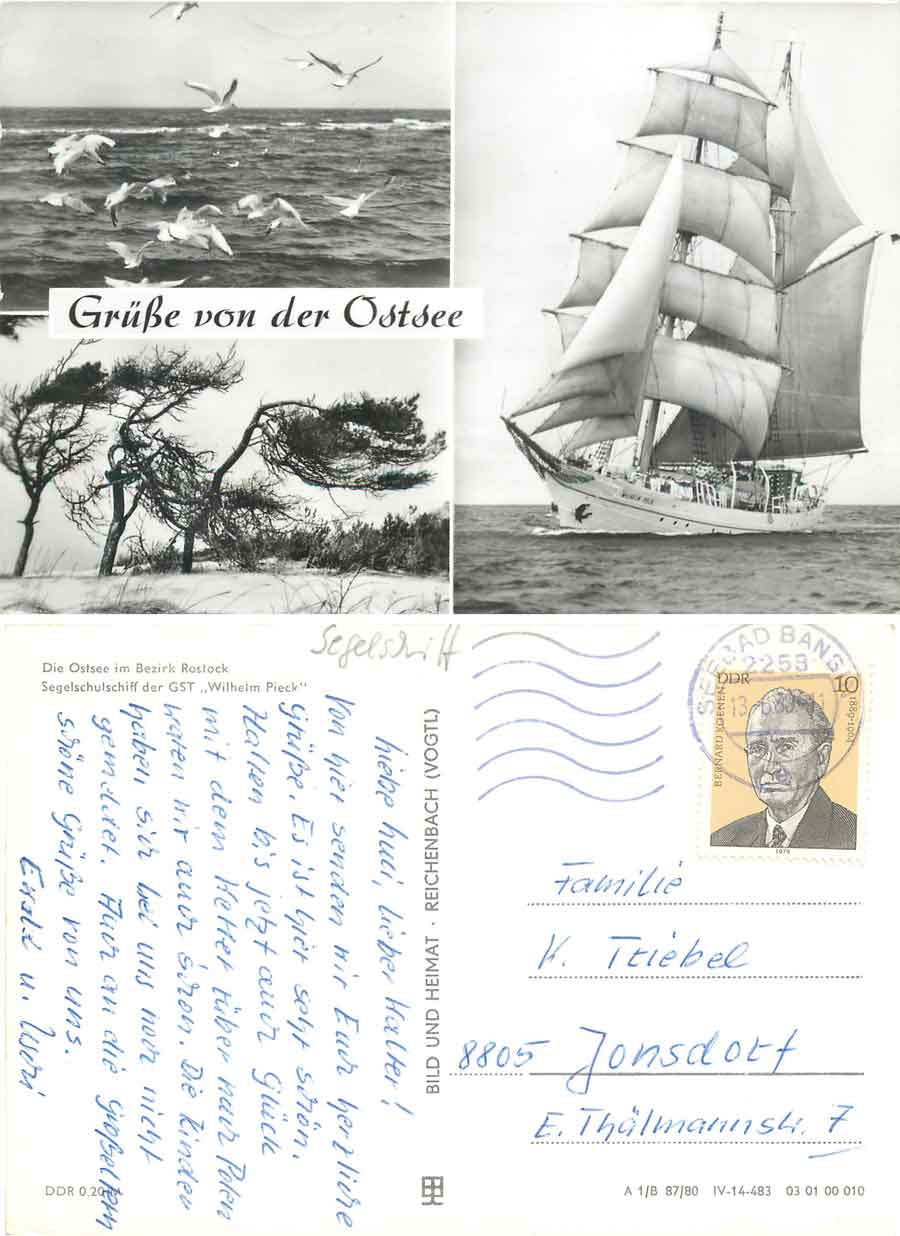 Grüße von der Ostsee
WILHELM PIECK
Segelschiff
Die Ostsee im Bezirk Rostock
Segelschulschiff der GST „Wilhelm Pieck"
Liebe Lieber Walter!
Von hier senden wir Euch herzliche
Grüße. Es ist hier sehr schön.
Hatten bis jetzt auch Glück
mit dem Wetter über nach Polen
waren wir auch schon. Die Kinder
haben sich bei uns noch nicht
gemeldet. Auch an die Großeltern
schöne Grüße von uns.
Ewald u.
BILD UND HEIMAT · REICHENBACH (VOGTL)
SEEBAD BANSIN
2253
13.-6.80
DDR 10
BERNARD KOENEN 1889-1964
1979
Familie
K. Triebel
8805 Jonsdorf
E. Thälmannstr. 7
DDR 0,20 M
A 1/B 87/80 IV-14-483 03 01 00 010